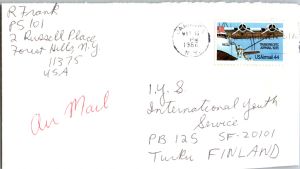 R Frank
PS 101
2 Russell Place
Forest Hills, N.Y.
11375
USA
Air Mail
PM
1986
N.Y.
TRANSPACIFIC
AIRMAIL 1935
USAirmail 44
I.Y.S.
International Youth
Service
PB 125 SF-20101
Turku FINLAND